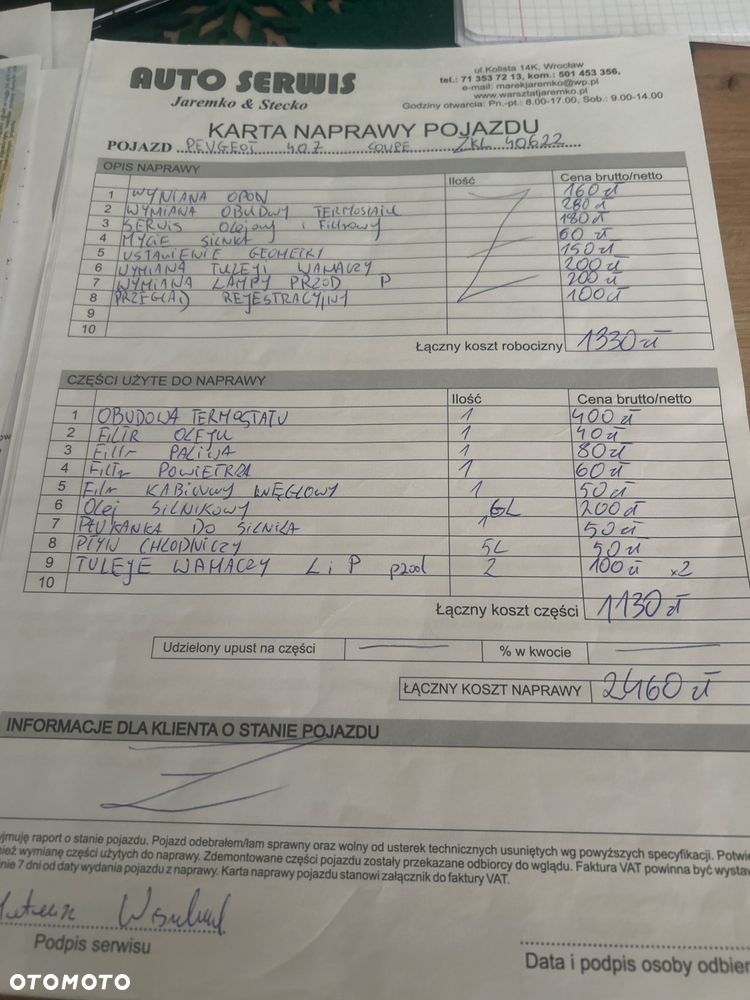 AUTO SERWIS
Jaremko & Stecko
ul.Kolista 14K, Wrocław
tel.: 71 353 72 13, kom.: 501 453 356,
e-mail: marekjaremko@wp.pl
www.warsztatjaremko.pl
Godziny otwarcia: Pn.-pt.: 8.00-17.00, Sob.: 9.00-14.00
KARTA NAPRAWY POJAZDU
POJAZD PEUGEOT 407 COUPE ZKL 40622
OPIS NAPRAWY Ilość Cena brutto/netto
1 WYMIANA OPON 160 zł
2 WYMIANA OBUDOWY TERMOSTATU 280 zł
3 SERWIS Olejowy i Filtrowy 180 zł
4 MYCIE SILNKA 60 zł
5 USTAWIENIE GEOMETRI 150 zł
6 WYMIANA TULEJI WAHACZY 200 zł
7 WYMIANA LAMPY PRZOD P 200 zł
8 PRZEGLĄD REJESTRACYJNY 100 zł
9
10
Łączny koszt robocizny 1330 zł
CZĘŚCI UŻYTE DO NAPRAWY Ilość Cena brutto/netto
1 OBUDOWA TERMOSTATU 1 400 zł
2 FILTR OLEJU 1 40 zł
3 Filtr PALIWA 1 80 zł
4 Filtr POWIETRZA 1 60 zł
5 Filtr KABINOWY WĘGLOWY 1 50 zł
6 Olej SILNIKOWY 6L 200 zł
7 PŁUKANKA DO SILNIKA 1 50 zł
8 PŁYN CHŁODNICZY 5L 50 zł
9 TULEJE WAHACZY L i P przod 2 100 zł x2
10
Łączny koszt części 1130 zł
Udzielony upust na części % w kwocie
ŁĄCZNY KOSZT NAPRAWY 2460 zł
INFORMACJE DLA KLIENTA O STANIE POJAZDU
yjmuję raport o stanie pojazdu. Pojazd odebrałem/łam sprawny oraz wolny od usterek technicznych usuniętych wg powyższych specyfikacji. Potwie
nież wymianę części użytych do naprawy. Zdemontowane części pojazdu zostały przekazane odbiorcy do wglądu. Faktura VAT powinna być wystaw
nie 7 dni od daty wydania pojazdu z naprawy. Karta naprawy pojazdu stanowi załącznik do faktury VAT.
Podpis serwisu
Data i podpis osoby odbier
OTOMOTO